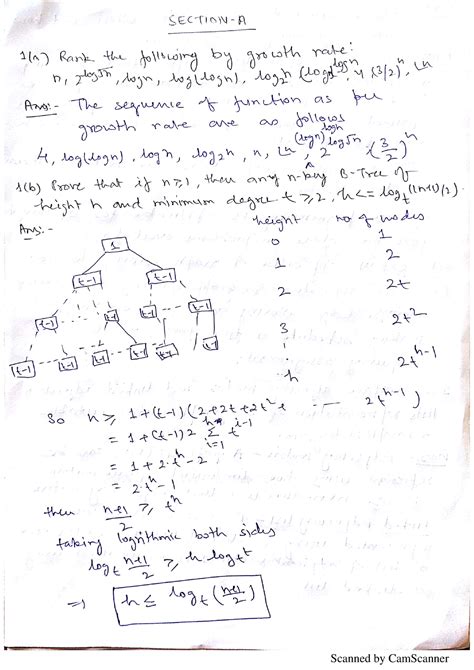 SECTION-A
1(a) Rank the following by growth rate:
n, 2^log√n, logn, log(logn), log₂n, (logn)^logn, 4, (3/2)^n, Ln
Ans:- The sequence of function as per
growth rate are as follows
4, log(logn), logn, log₂n, n, Ln, (logn)^logn, 2^log√n, (3/2)^n
1(b) Prove that if n≥1, then any n-key B-Tree of
height h and minimum degree t≥2, h<=log_t((n+1)/2).
Ans:-
height no of nodes
0 1
1 2
2 2t
3 2t²
h 2t^h-1
1
t-1 t-1
t-1 t-1 t-1 t-1 t-1
t-1 t-1 t-1 t-1 t-1 t-1
So n ≥ 1+(t-1)(2+2t+2t²+ ---- 2t^h-1)
= 1+(t-1)2 Σ_{i=1}^{h} t^i-1
= 1+2·t^h-2
= 2·t^h-1
then (n+1)/2 ≥ t^h
taking logrithmic both sides
log_t (n+1)/2 ≥ h·log_t t
⇒ h ≤ log_t((n+1)/2)
Scanned by CamScanner